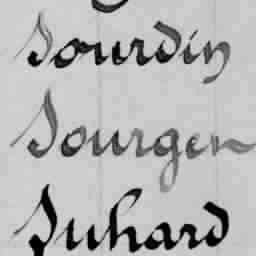 Sourdin
Sourgen
Suhard